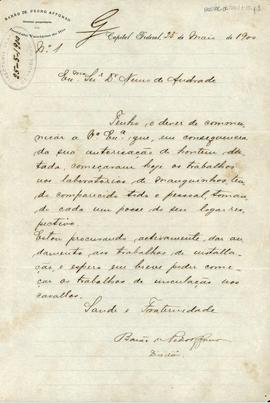 BARÃO DE PEDRO AFFONSO
Nº 1
Capital Federal, 25 de Maio de 1900
Exmo Snr. Dr. Nuno de Andrade
Tenho o dever de commu-
nicar a Vª Exª que, em consequencia
da sua autorisação de hontem da-
tada, começaram hoje os trabalhos
nos laboratorios de Manguinhos, ten-
do comparecido todo o pessoal, toman-
do cada um posse do seu logar res-
pectivo.
Estou procurando, activamente, dar an-
damento aos trabalhos de installa-
ção, e espero em breve poder come-
çar os trabalhos de inoculação nos
cavallos.
Saude e Fraternidade
Barão de Pedro Affonso
Director